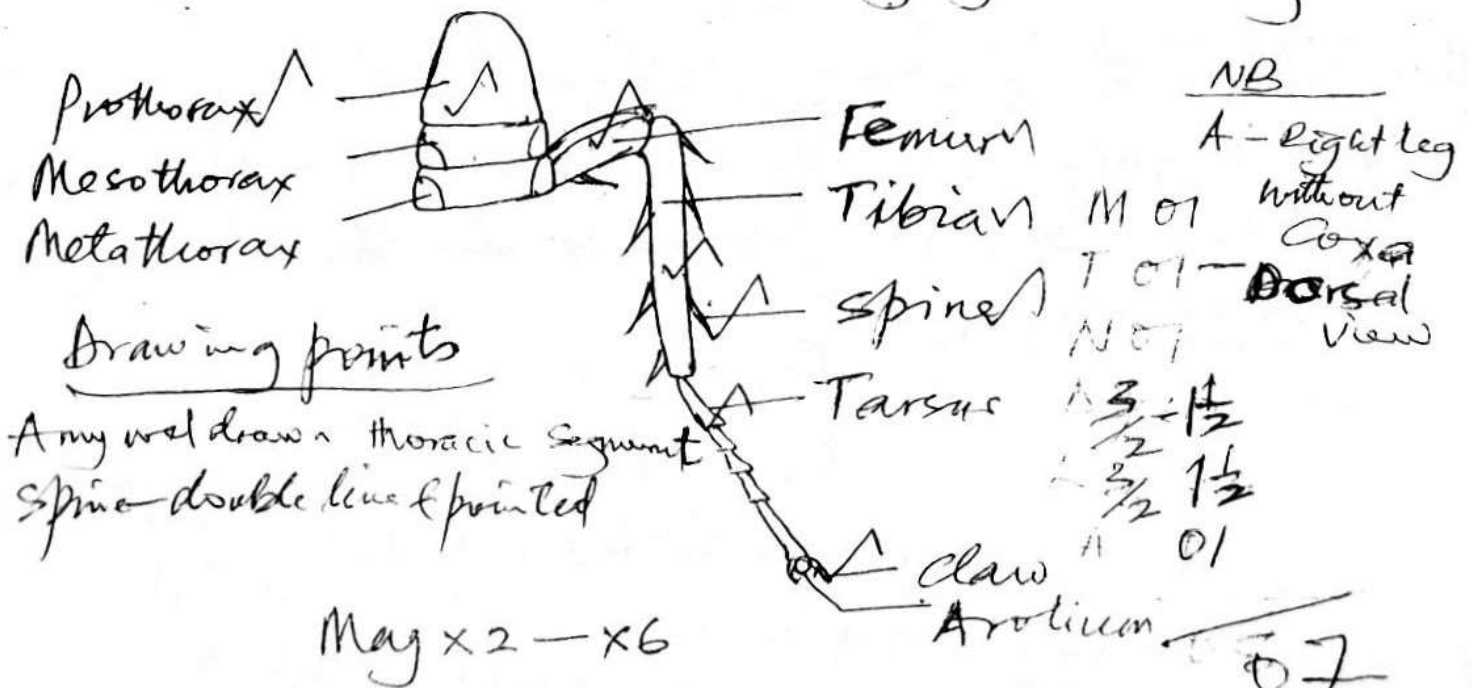 Prothorax
Mesothorax
Metathorax
Drawing points
Any wel drawn thoracic segment
Spine - double line & pointed
Mag x 2 — x6
Femur
Tibia
Spine
Tarsus
Claw
Arolium
NB
A - Right leg
without
Coxa
Dorsal
view
M 01
T 01 —
N 01
3/2 - 1 1/2
3/2 1 1/2
01
07